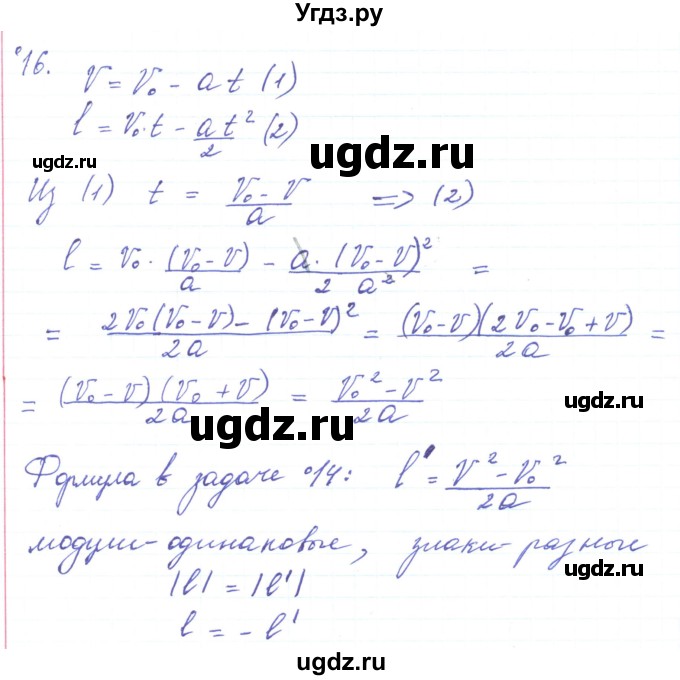 Угдз.ру
°16. V = V₀ - at (1)
l = V₀·t - at²/2 (2)
ugdz.ru ugdz.ru
Из (1) t = (V₀ - V)/a => (2)
l = V₀ · (V₀ - V)/a - a · (V₀ - V)²/(2 a²) =
ugdz.ru
= (2V₀(V₀ - V) - (V₀ - V)²)/(2a) = ((V₀ - V)(2V₀ - V₀ + V))/(2a) =
ugdz.ru
= ((V₀ - V)(V₀ + V))/(2a) = (V₀² - V²)/(2a)
ugdz.ru ugdz.ru
Формула в задаче °14: l' = (V² - V₀²)/(2a)
модули - одинаковые, знаки - разные
ugdz.ru ugdz.ru
|l| = |l'|
l = - l'
ugdz.ru
ugdz.ru